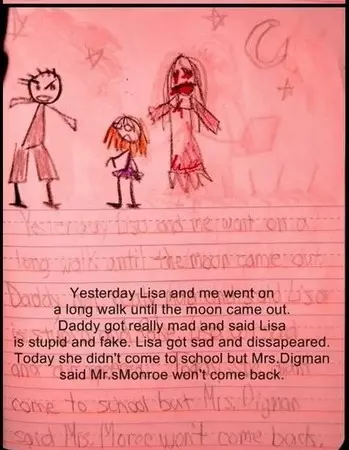 Yesterday Lisa and me went on a
long walk until the moon came out.
Daddy
Yesterday Lisa and me went on
a long walk until the moon came out.
Daddy got really mad and said Lisa
is stupid and fake. Lisa got sad and dissapeared.
Today she didn't come to school but Mrs.Digman
said Mr.sMonroe won't come back.
come to school but Mrs. Digman
said Mrs. won't come back.